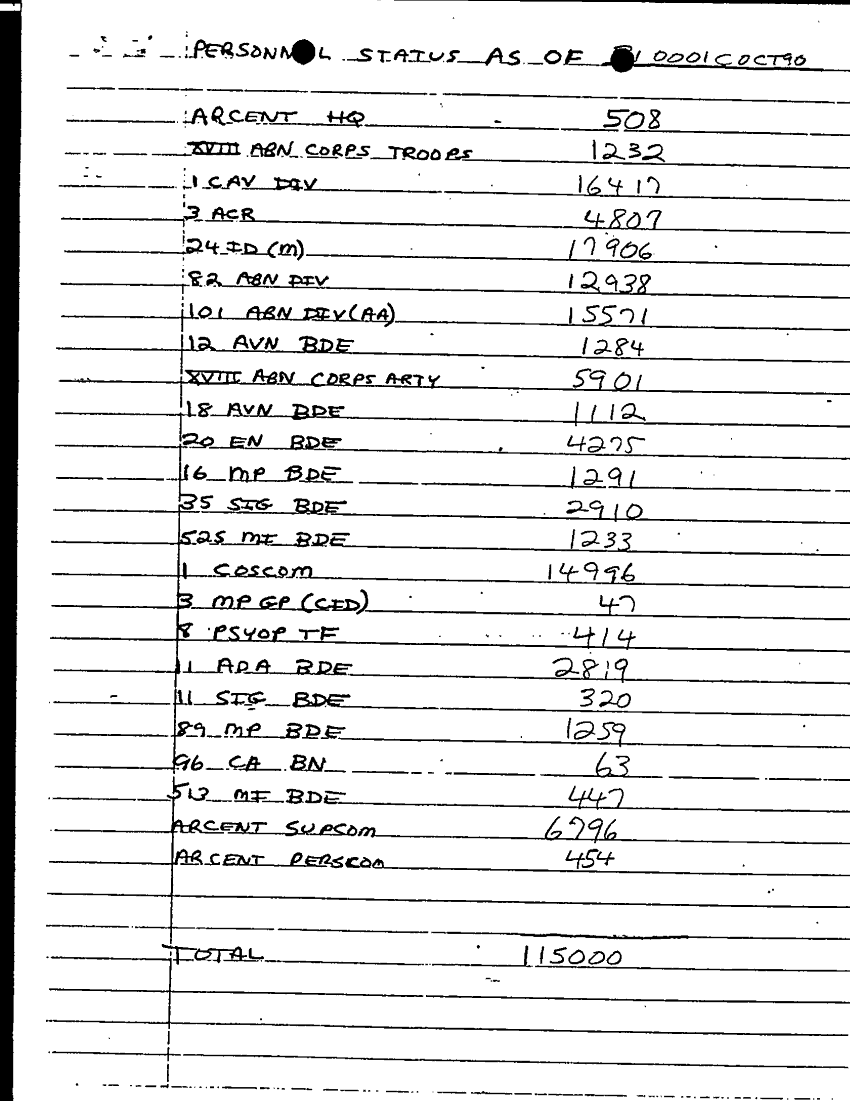 PERSONNEL STATUS AS OF 0001COCT90
ARCENT HQ 508
XVIII ABN CORPS TROOPS 1232
1 CAV DIV 16417
3 ACR 4807
24 ID (M) 17906
82 ABN DIV 12938
101 ABN DIV (AA) 15571
12 AVN BDE 1284
XVIII ABN CORPS ARTY 5901
18 AVN BDE 1112
20 EN BDE 4275
16 MP BDE 1291
35 SIG BDE 2910
525 MI BDE 1233
1 COSCOM 14996
3 MP GP (CID) 47
8 PSYOP TF 414
11 ADA BDE 2819
11 SIG BDE 320
89 MP BDE 1259
96 CA BN 63
513 MI BDE 447
ARCENT SUPCOM 6796
ARCENT PERSCOM 454
TOTAL 115000